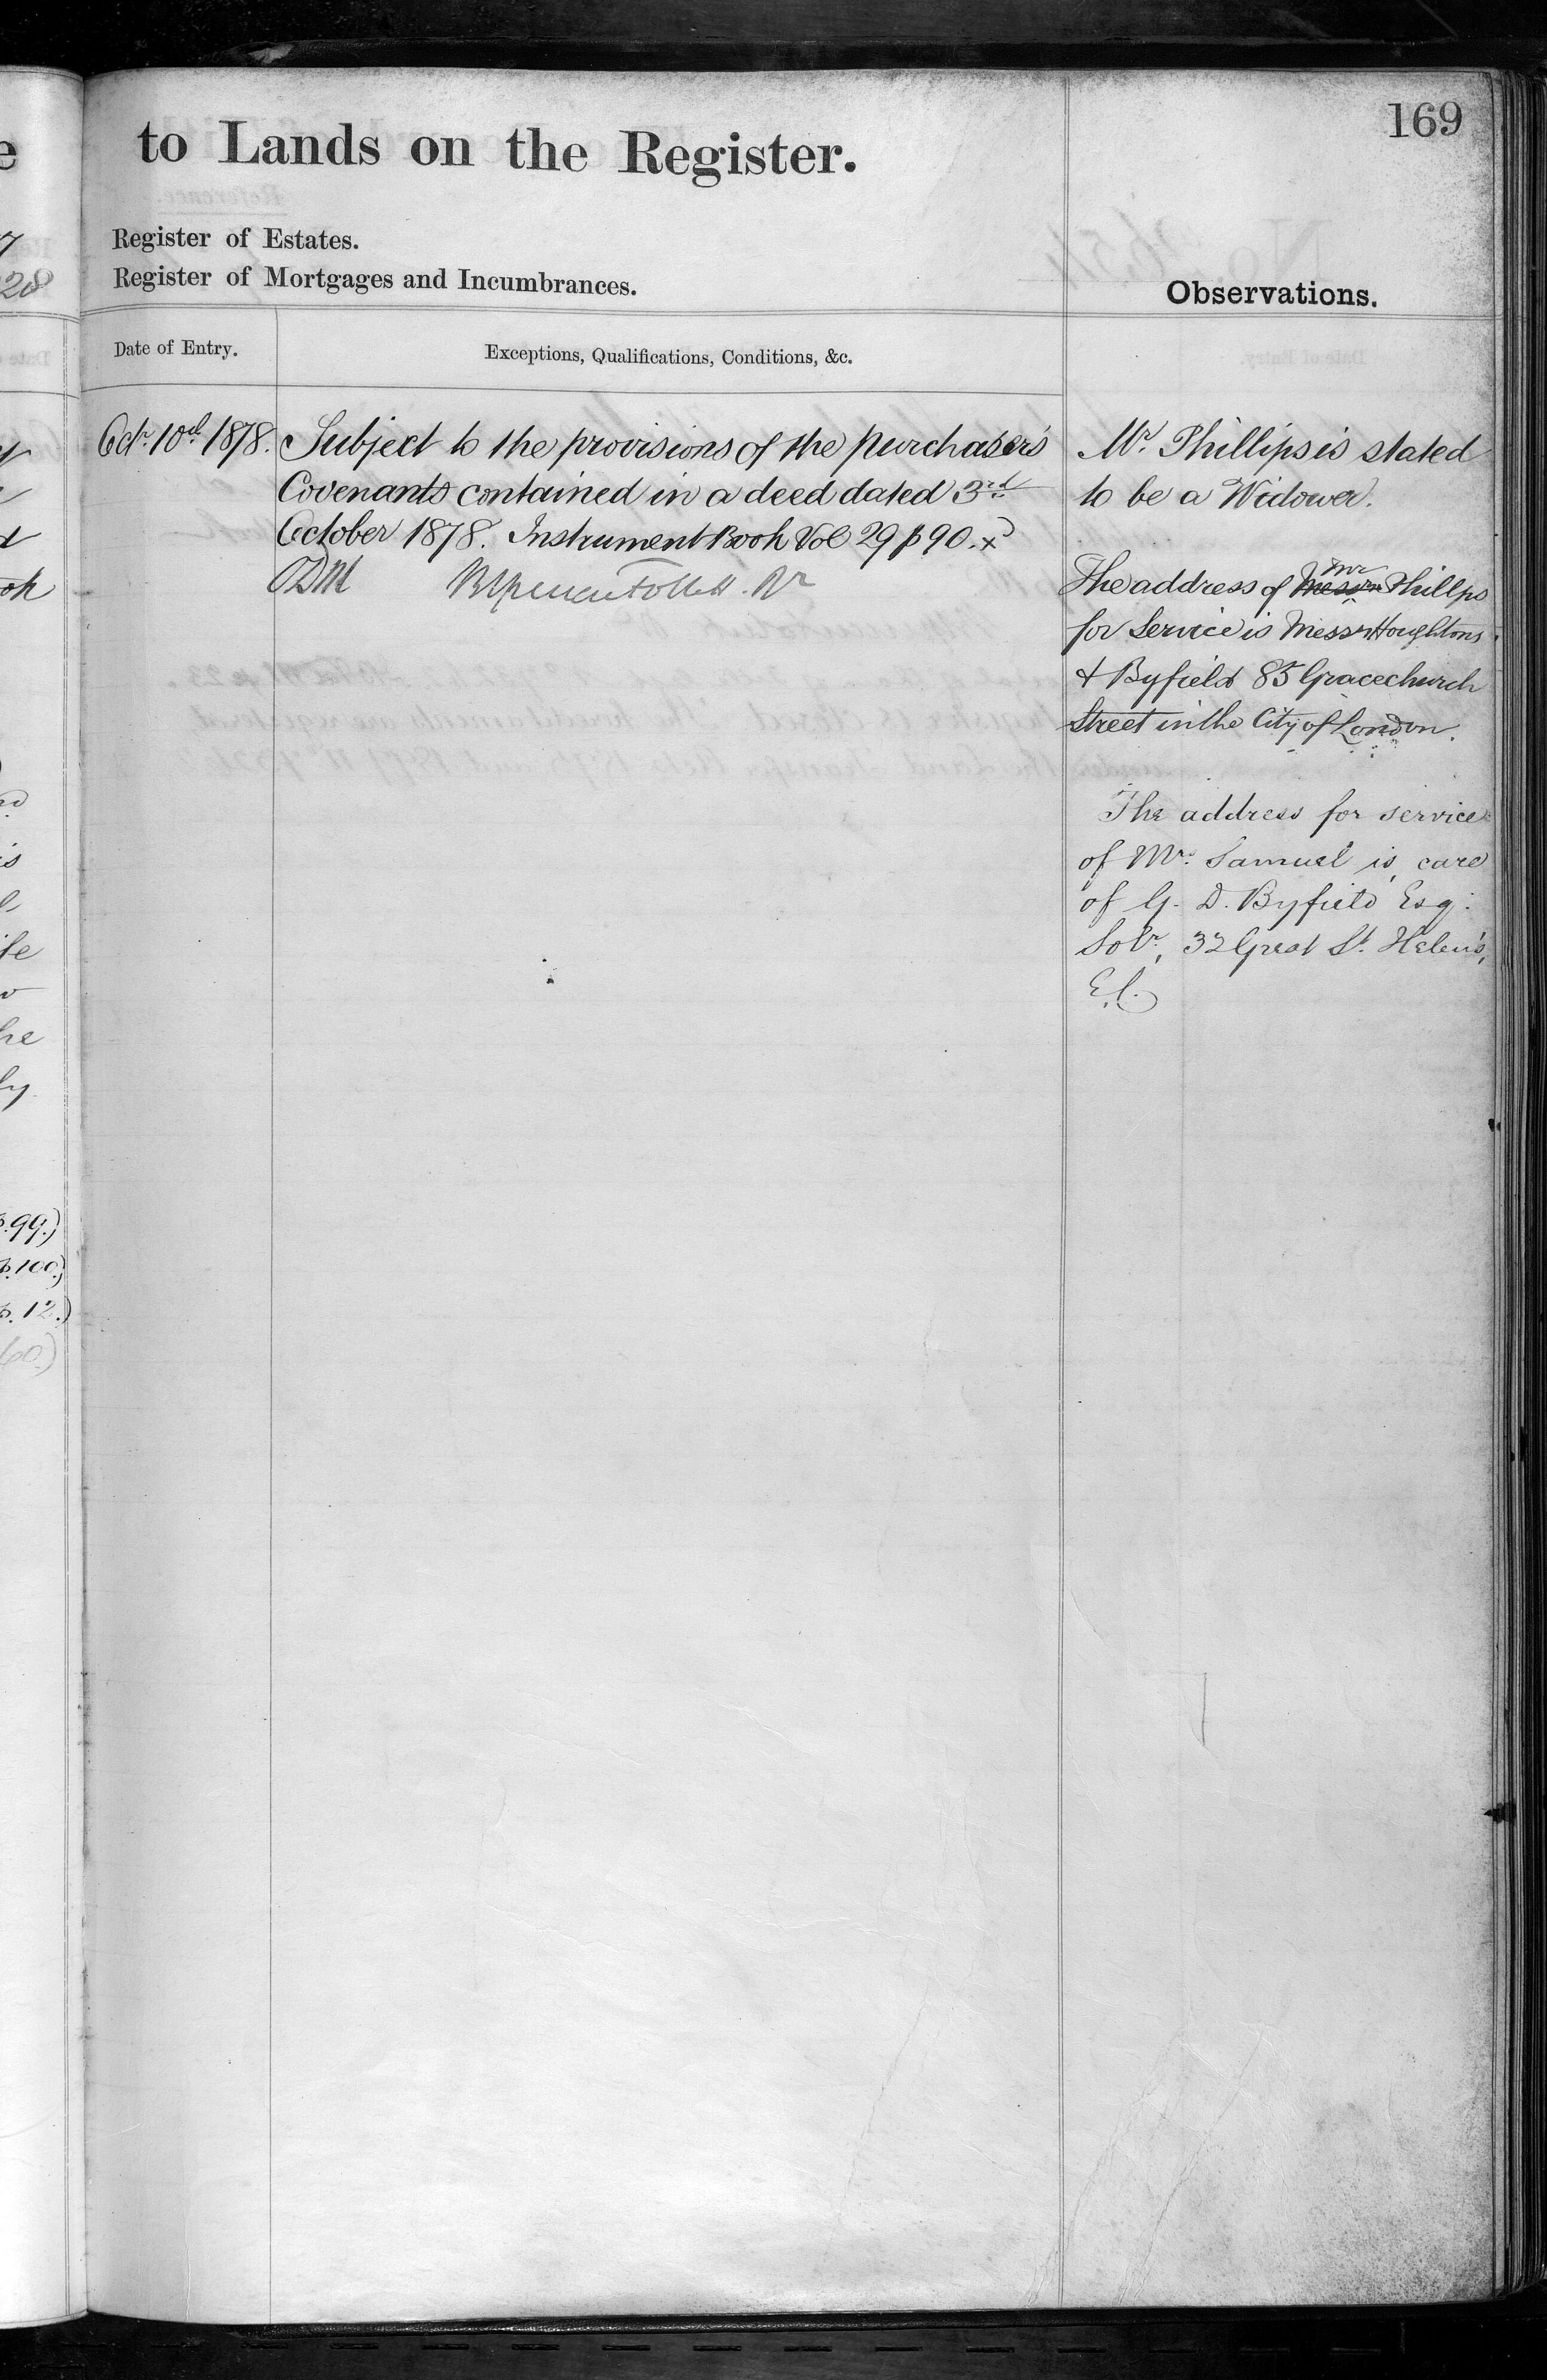 169
to Lands on the Register.
Register of Estates.
Register of Mortgages and Incumbrances.
Observations.
Date of Entry.
Exceptions, Qualifications, Conditions, &c.
Octr. 10th 1878.
Subject to the provisions of the purchaser's
Covenants contained in a deed dated 3rd
October 1878. Instrument Book Vol 29 p 90. x
Mr. Phillips is stated
to be a Widower.
The address of Messrs Mr Phillps
for Service is Messrs Houghtons
& Byfield 85 Gracechurch
Street in the City of London.
The address for service
of Mr. Samuel is, care
of G. D. Byfield Esq:
Solr., 32 Great St. Helen's,
E.C.
28
p.99.)
p.100.)
p.12.)
60.)